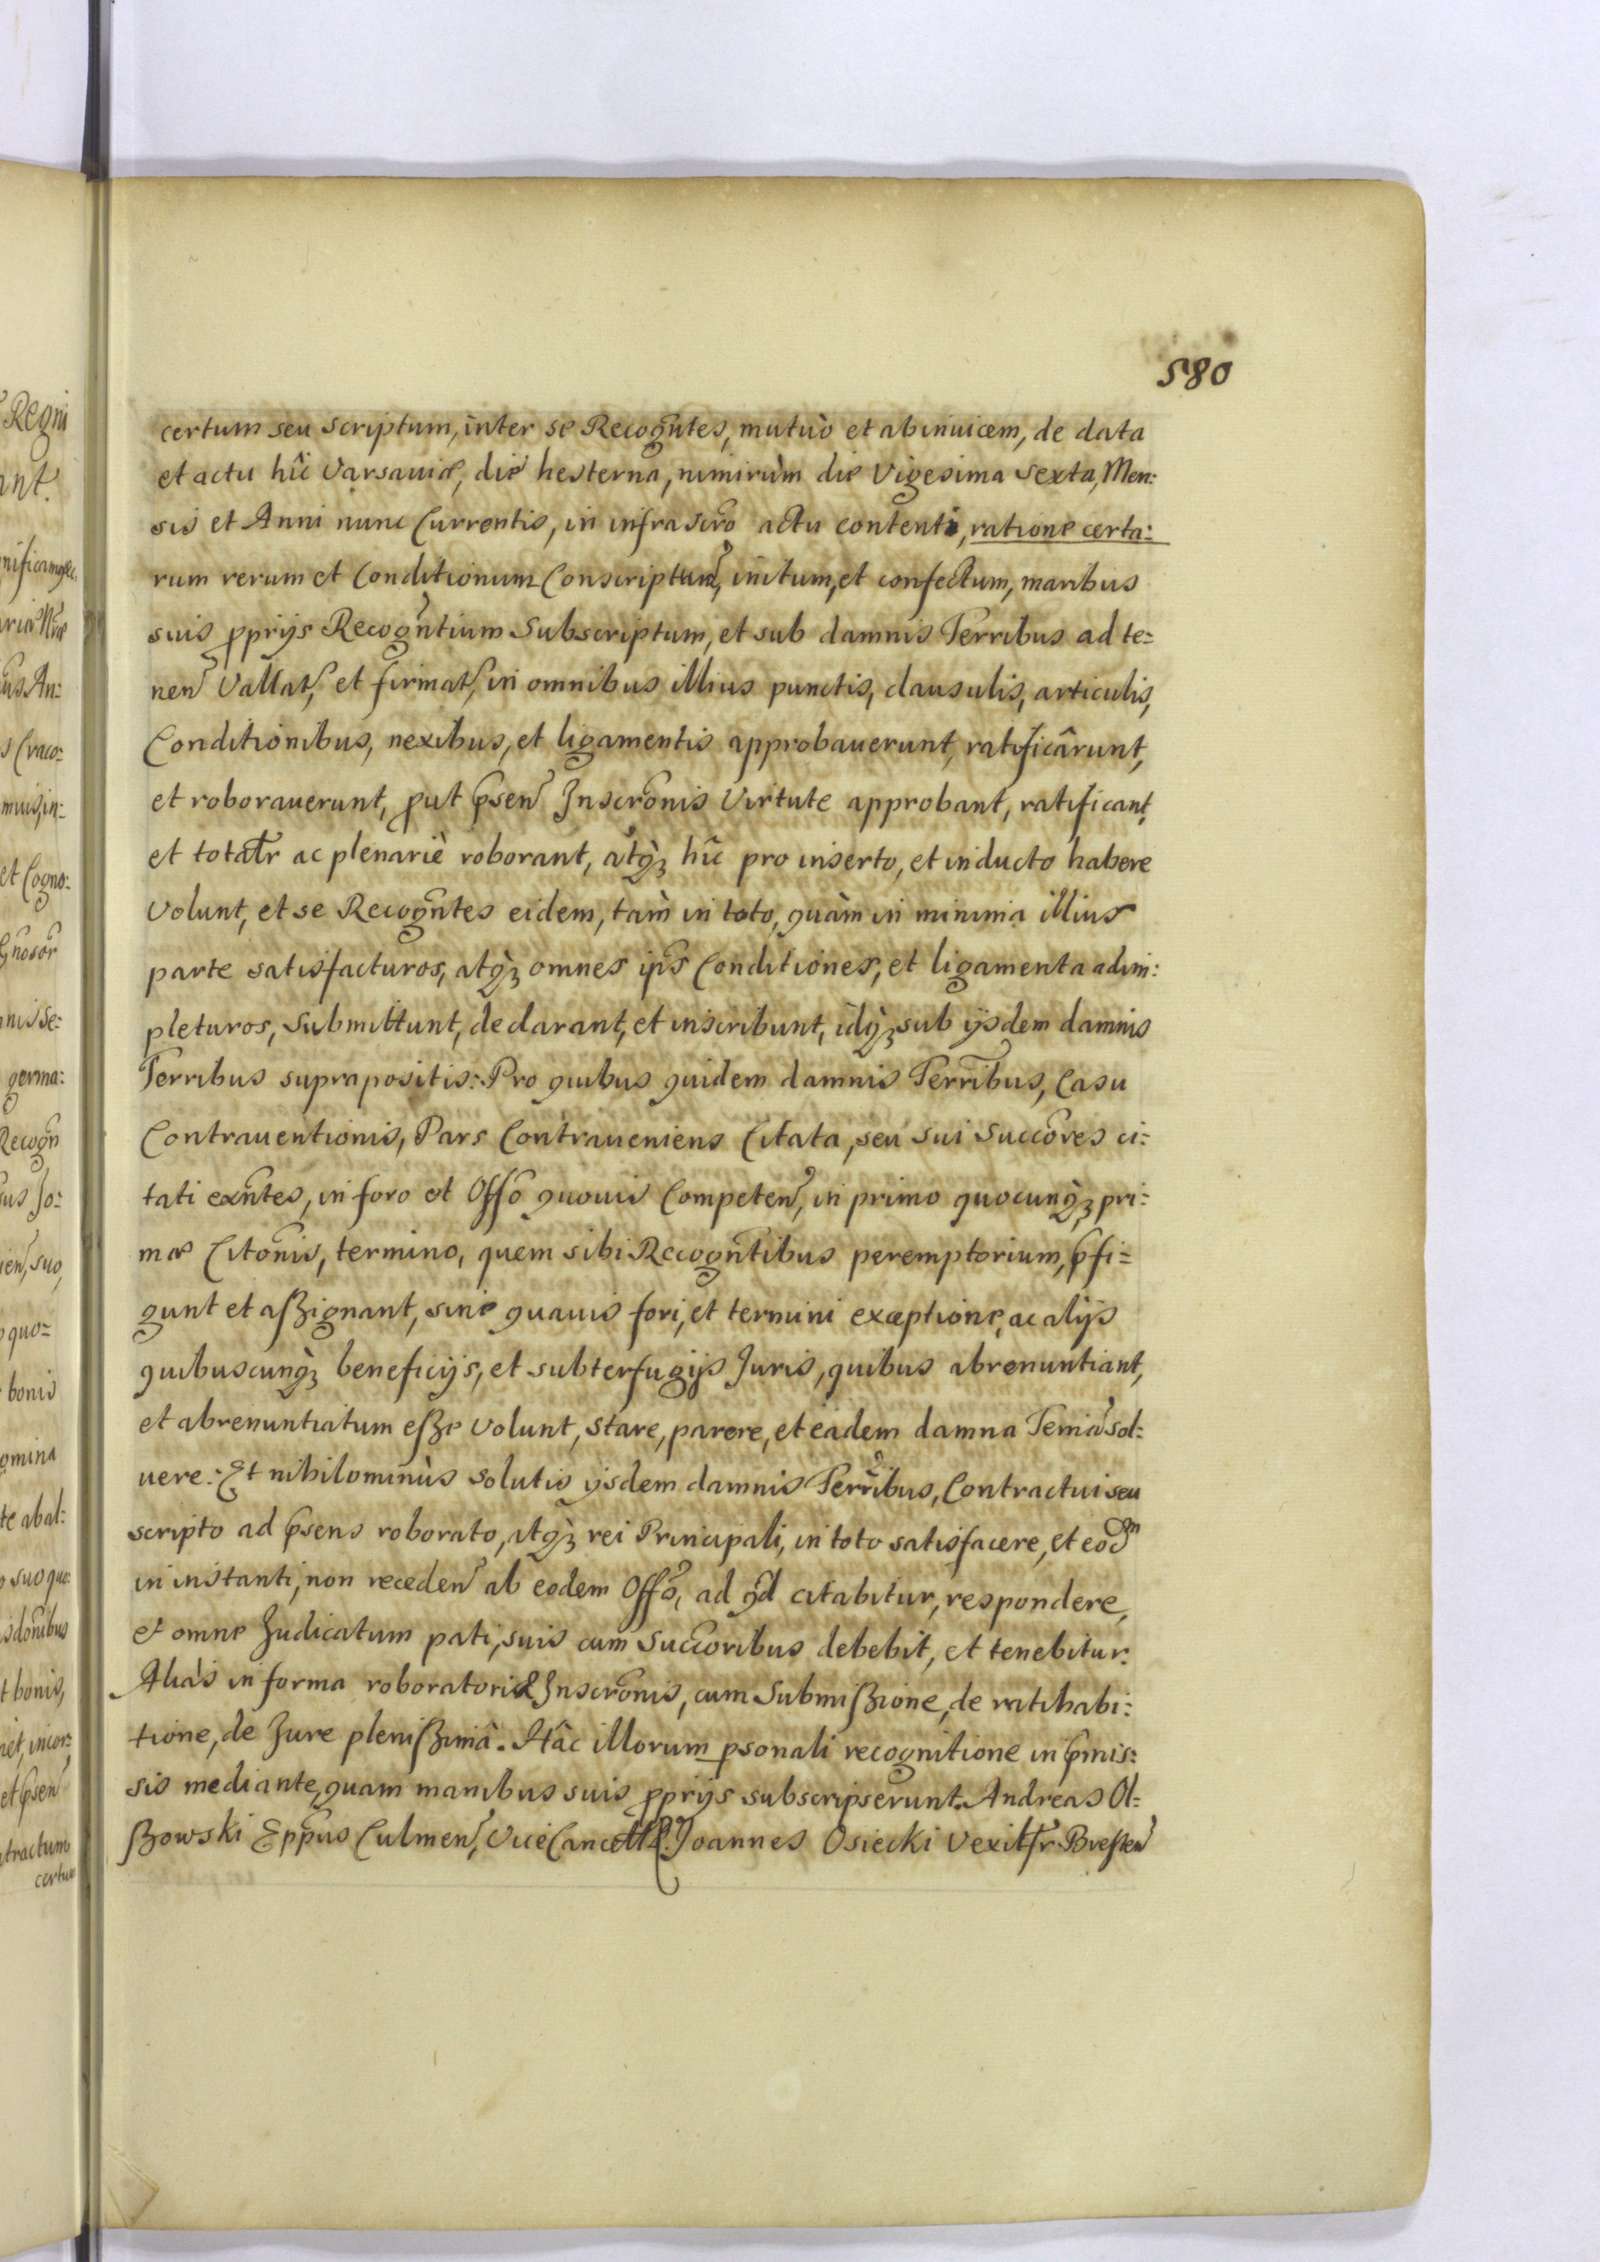 580
certum seu scriptum, inter se Recogntes, mutuò et abinuicem, de data
et actu hîc Varsauiæ, die hesterna, nimirùm die Vigesima Sexta, Men:
sis et Anni nunc Currentis, in infrascro actu contenti, ratione certa:
rum rerum et Conditionum Conscriptum, initum, et confectum, manibus
suis pprijs Recogntium Subscriptum, et sub damnis Terribus ad te:
nen Vallat, et firmat, in omnibus illius punctis, clausulis, articulis,
Conditionibus, nexibus, et ligamentis approbauerunt, ratificârunt,
et roborauerunt, put psen Inscronis Virtute approbant, ratificant,
et totatr ac plenariè roborant, atq hîc pro inserto, et inducto habere
Volunt, et se Recogntes eidem, tàm in toto, quàm in minima illius
parte satisfacturos, atq omnes ips Conditiones, et ligamenta adim:
pleturos, submittunt, declarant, et inscribunt, idq sub ijsdem damnis
Terribus suprapositis: Pro quibus quidem damnis Terribus, Casu
Contrauentionis, Pars Contraueniens Citata, seu sui Succores ci:
tati exntes, in foro et Offo quouis Competen, in primo quocunq pri:
mæ Citonis, termino, quem sibi Recogntibus peremptorium, pfi:
gunt et aßignant, sine quauis fori, et termini exceptione, ac alijs
quibuscunq beneficijs, et subterfugijs Juris, quibus abrenuntiant,
et abrenuntiatum eße Volunt, stare, parere, et eadem damna Terria sol:
uere: Et nihilominùs solutis ijsdem damnis Terribus, Contractui seu
scripto ad psens roborato, atq rei Principali, in toto satisfacere, et eodm
in instanti, non receden ab eodem Offo, ad qd citabitur, respondere,
et omne Judicatum pati, suis cum Succoribus debebit, et tenebitur.
Aliàs in forma roboratoriæ Inscronis, cum Submißione, de ratihabi:
tione, de Jure plenißimâ. Hâc illorum psonali recognitione in pmis:
sis mediante, quam manibus suis pprijs subscripserunt. Andreas Ol:
ßowski Eppus Culmen, ViceCancell R. Joannes Osiecki Vexillr Bresten